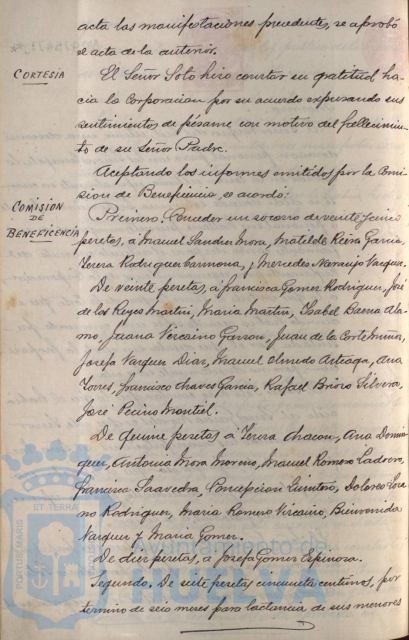 acta las manifestaciones precedentes, se aprobó
el acta de la anterior.
CORTESIA
El Señor Soto hizo constar su gratitud ha-
cia la Corporacion por su acuerdo expresando sus
sentimientos de pésame con motivo del fallecimien-
to de su Señor Padre.
Aceptando los informes emitidos por la Comi-
sion de Beneficencia, se acordó:
COMISION
DE
BENEFICENCIA
Primero. Conceder un socorro de veinte y cinco
pesetas, á Manuel Sanchez Mora, Matilde Riera Garcia,
Teresa Rodriguez Carmona, y Mercedes Naranjo Vazquez.
De veinte pesetas, á Francisca Gomez Rodriguez, José
de los Reyes Martin, Maria Martin, Isabel Baena Ala-
mo, Juana Vizcaino Garzon, Juan de la Corte Muñoz,
Josefa Vazquez Diaz, Manuel Olmedo Arteaga, Ana
Torres, Francisco Chaves Garcia, Rafael Brioso Silvera,
José Pecino Montiel.
De quince pesetas á Teresa Chacon, Ana Domin-
guez, Antonia Mora Moreno, Manuel Romero
Francisca Saavedra, Concepcion Quintero, Dolores More-
no Rodriguez, Maria Romero Vizcaino, Bienvenida
Vazquez y Maria Gomez.
De diez pesetas, á Josefa Gomez Espinosa.
Segundo. De siete pesetas cincuenta centimos, por
termino de seis meses para lactancia de sus menores
PORTUS MARIS
ET TERRAE
Ayuntamiento de
HUELVA